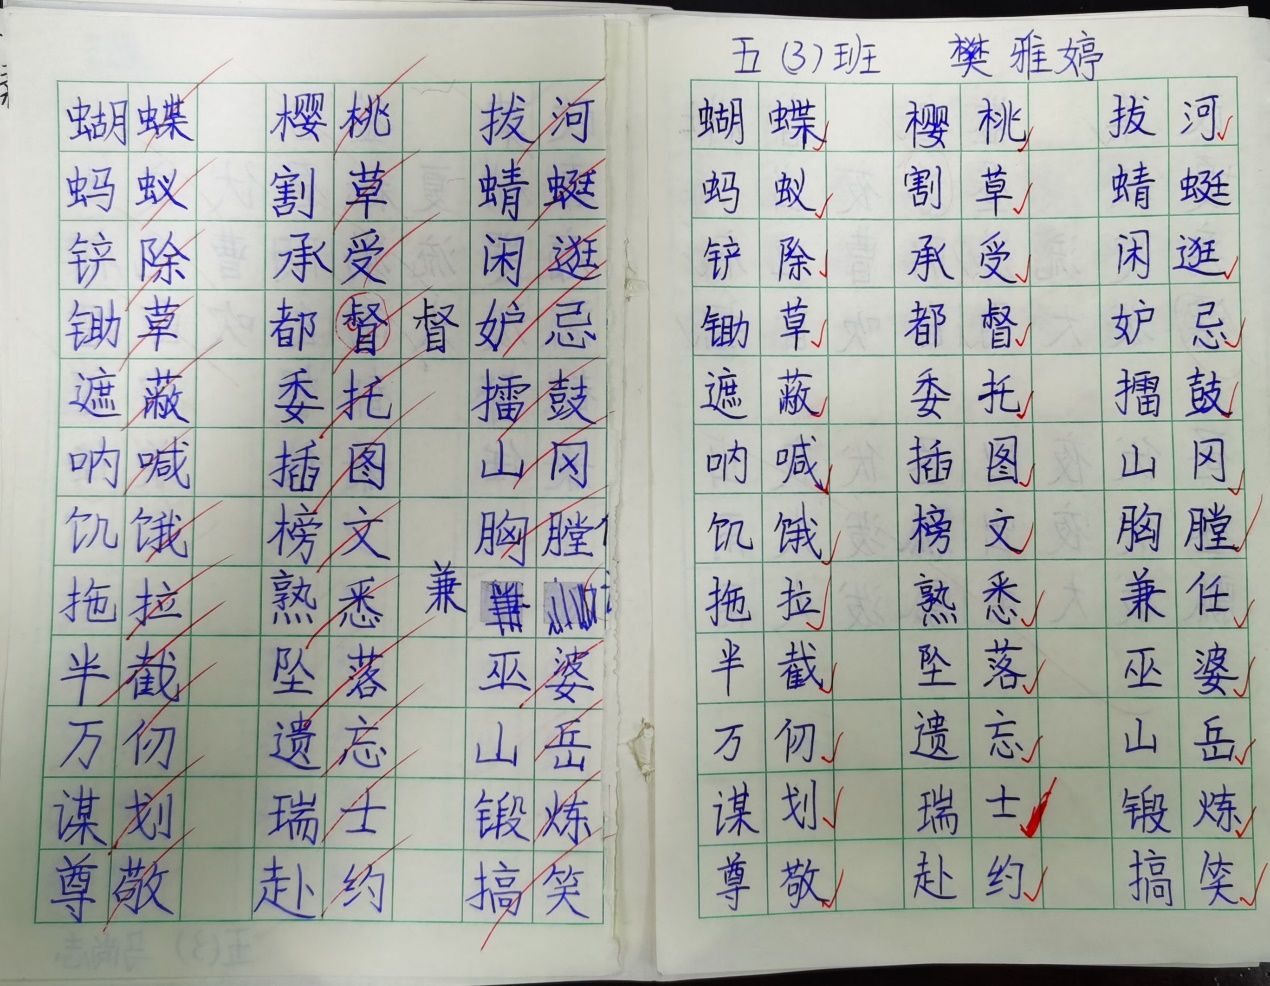 蝴蝶 樱桃 拔河
蚂蚁 割草 蜻蜓
铲除 承受 闲逛
锄草 都督 督 妒忌
遮蔽 委托 擂鼓
呐喊 插图 山冈
饥饿 榜文 胸膛
拖拉 熟悉 兼
半截 坠落 巫婆
万仞 遗忘 山岳
谋划 瑞士 锻炼
尊敬 赴约 搞笑
五(3)班 樊雅婷
蝴蝶 樱桃 拔河
蚂蚁 割草 蜻蜓
铲除 承受 闲逛
锄草 都督 妒忌
遮蔽 委托 擂鼓
呐喊 插图 山冈
饥饿 榜文 胸膛
拖拉 熟悉 兼任
半截 坠落 巫婆
万仞 遗忘 山岳
谋划 瑞士 锻炼
尊敬 赴约 搞笑